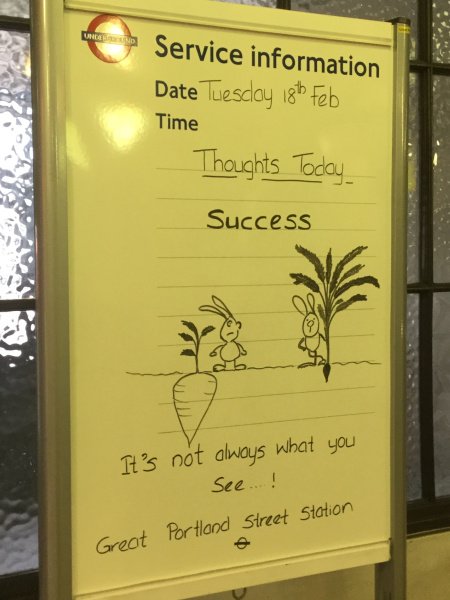 UNDERGROUND
Service information
Date Tuesday 18th Feb
Time
Thoughts Today
Success
It's not always what you
See....!
Great Portland Street Station